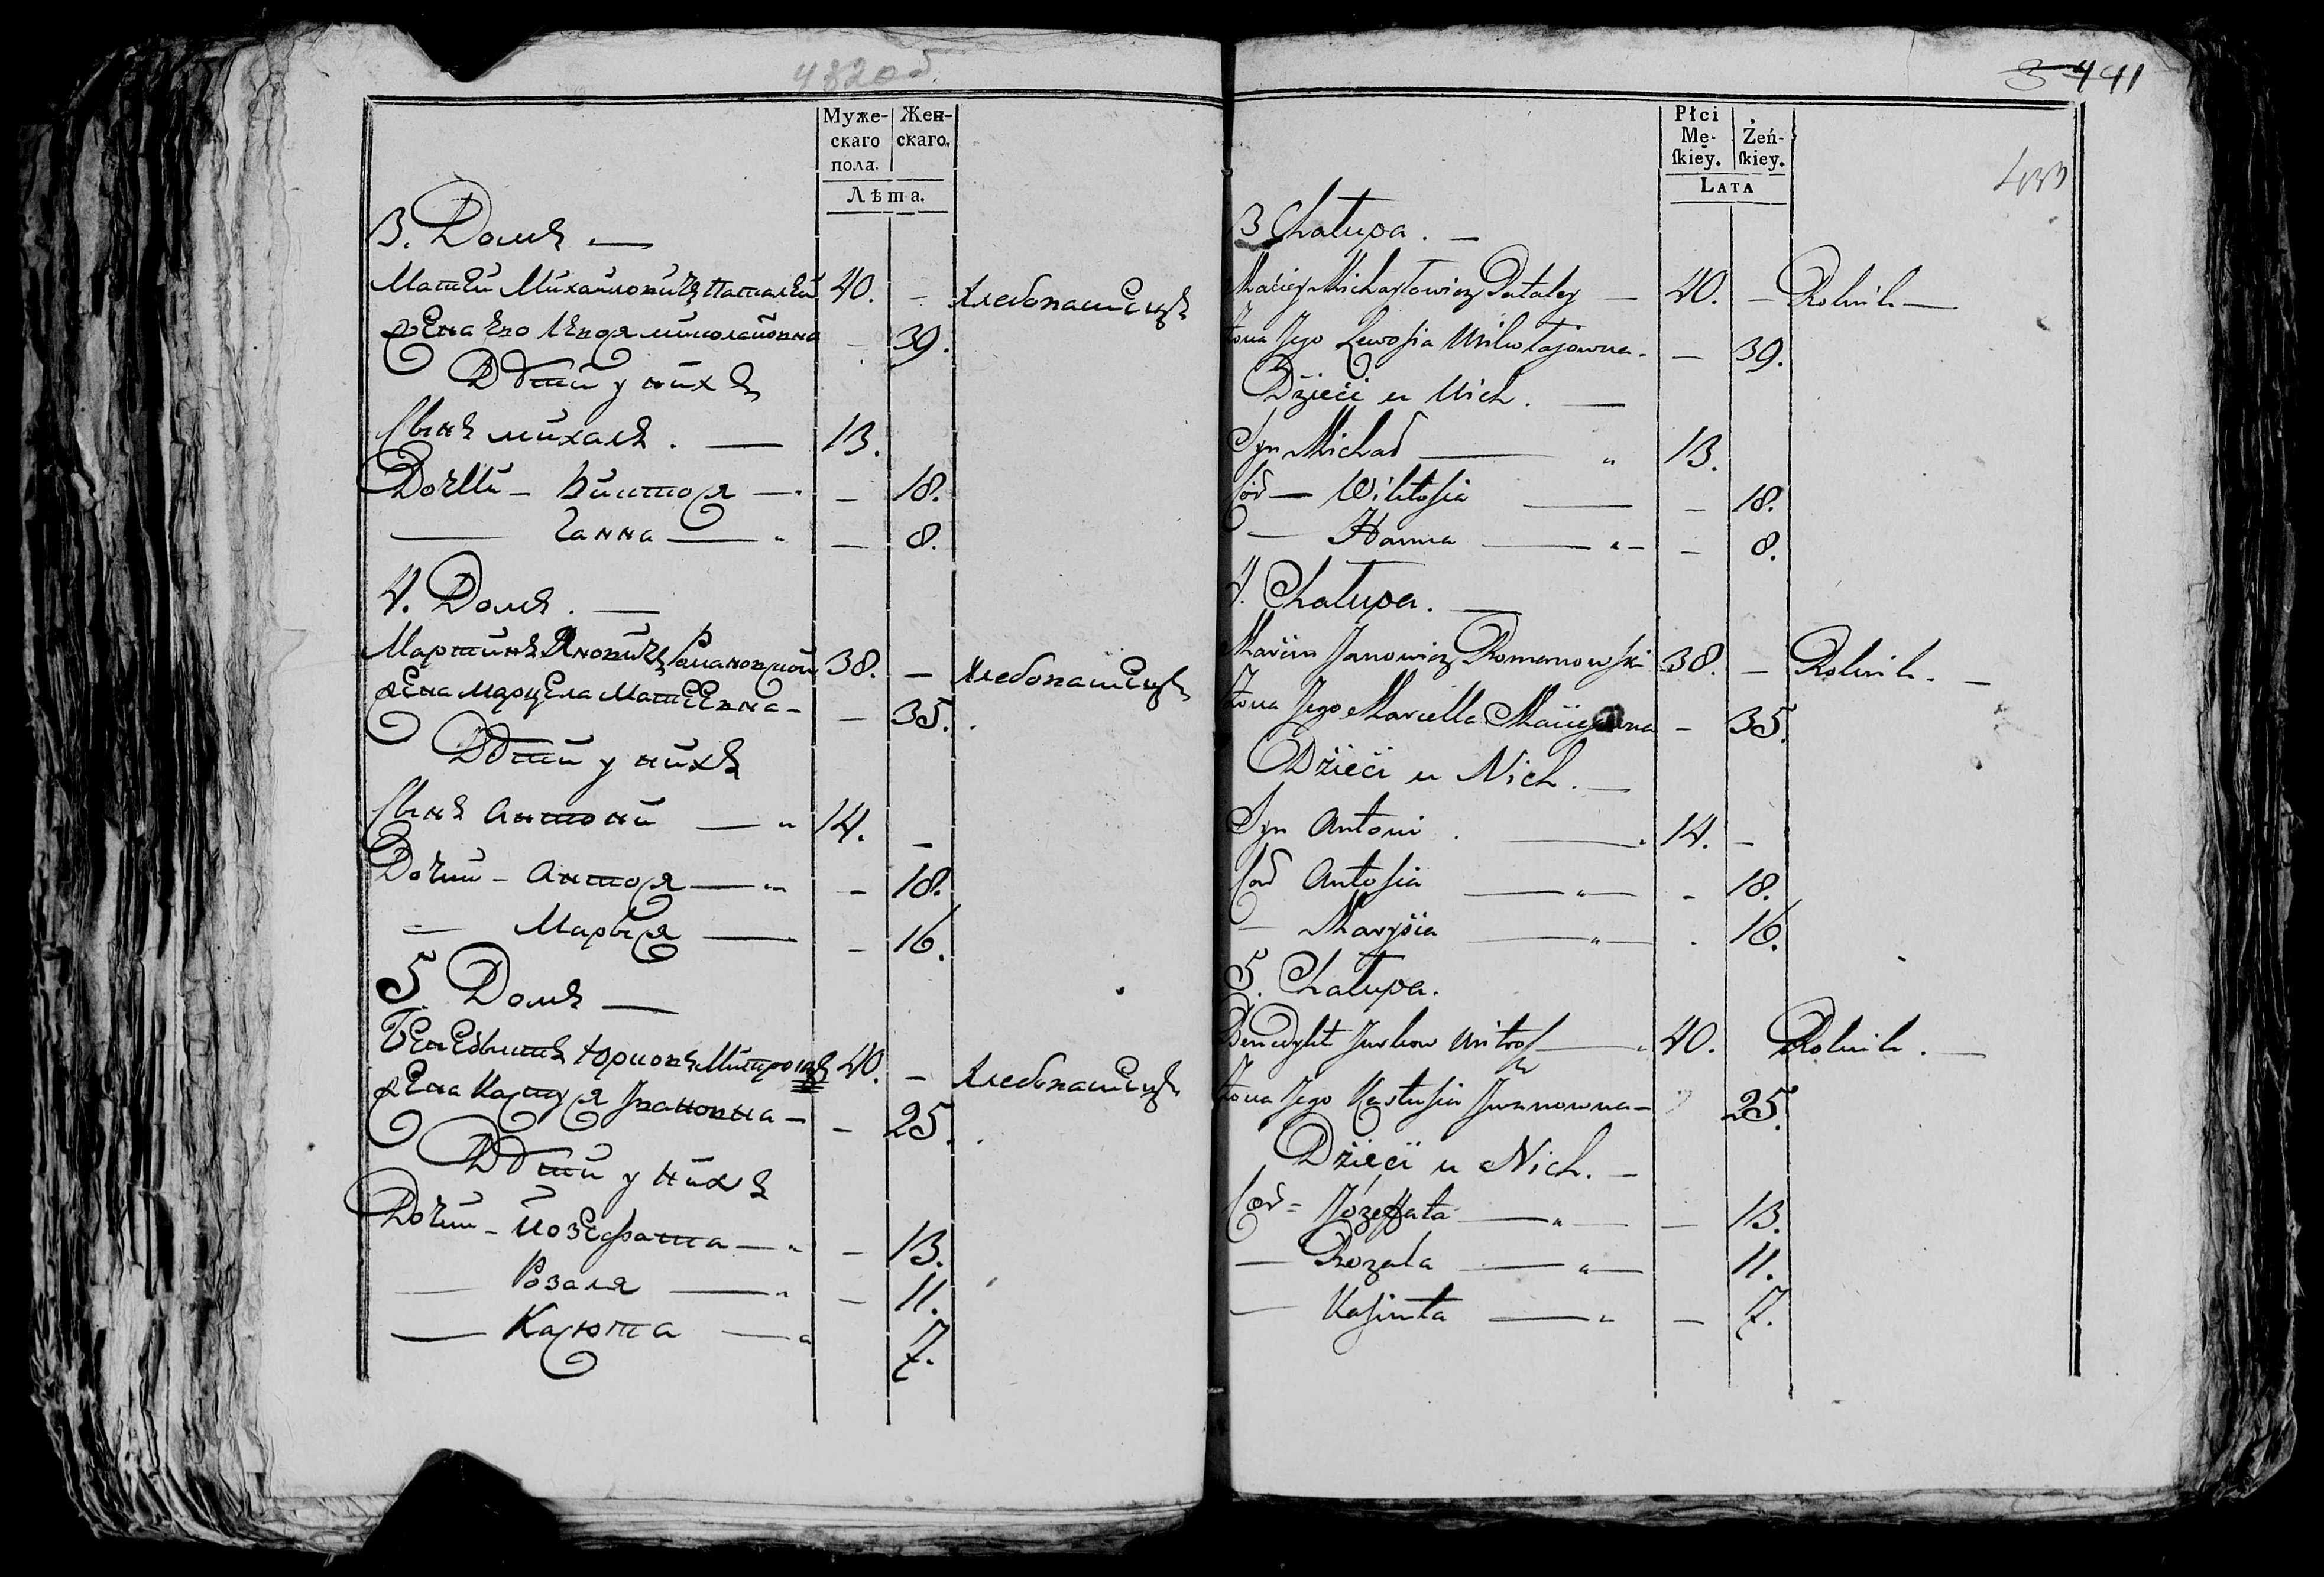 432 об
Муже-
скаго
пола.
Жен-
скаго.
Лѣта.
3. Домъ —
Матей Михайловичъ Паталей 40. — Хлебопашецъ
Жена его Левося Миколаювна — 39.
Дѣти у нихъ
Сынъ Михалъ. — 13.
Дочки — Виктося — — 18.
— Ганна — — 8.
4. Домъ. —
Мартинъ Яновичъ Романовской 38. — Хлебопашецъ
Жена Марцела Матеевна — — 35.
Дѣти у нихъ
Сынъ Антони — 14. —
Дочки — Антося — — 18.
— Марыся — — 16.
5. Домъ —
Бенедыктъ Юрковъ Митрошъ 40. — Хлебопашецъ
Жена Кастуся Ивановна — — 25.
Дѣти у нихъ
Дочки — Йозефата — — 13.
— Розаля — — 11.
— Касюта — 7.
3 441
433
Płci
Mę-
ſkiey.
Żeń-
ſkiey.
LATA
3 Chałupa. —
Maciey Michayłowicz Pataley — 40. — Rolnik —
Żona Jego Lewosia Mikołajowna — — 39.
Dzieci u Nich. —
Syn Michał — 13.
Cór — Wiktosia — — 18.
— Hanna — — 8.
4. Chałupa. —
Marcin Janowicz Romanowski 38. — Rolnik. —
Żona Jego Marcella Maciejowna — 35.
Dzieci u Nich. —
Syn Antoni. — 14. —
Cór Antosia — - 18.
— Marysia — . 16.
5. Chałupa.
Benedykt Jurkow Mitrosz — 40. Rolnik. —
Żona Jego Kastusia Jwanowna — 25.
Dzieci u Nich. —
Cór = Józeffata — — 13.
— Rozala — 11.
— Kasiuta — — 7.